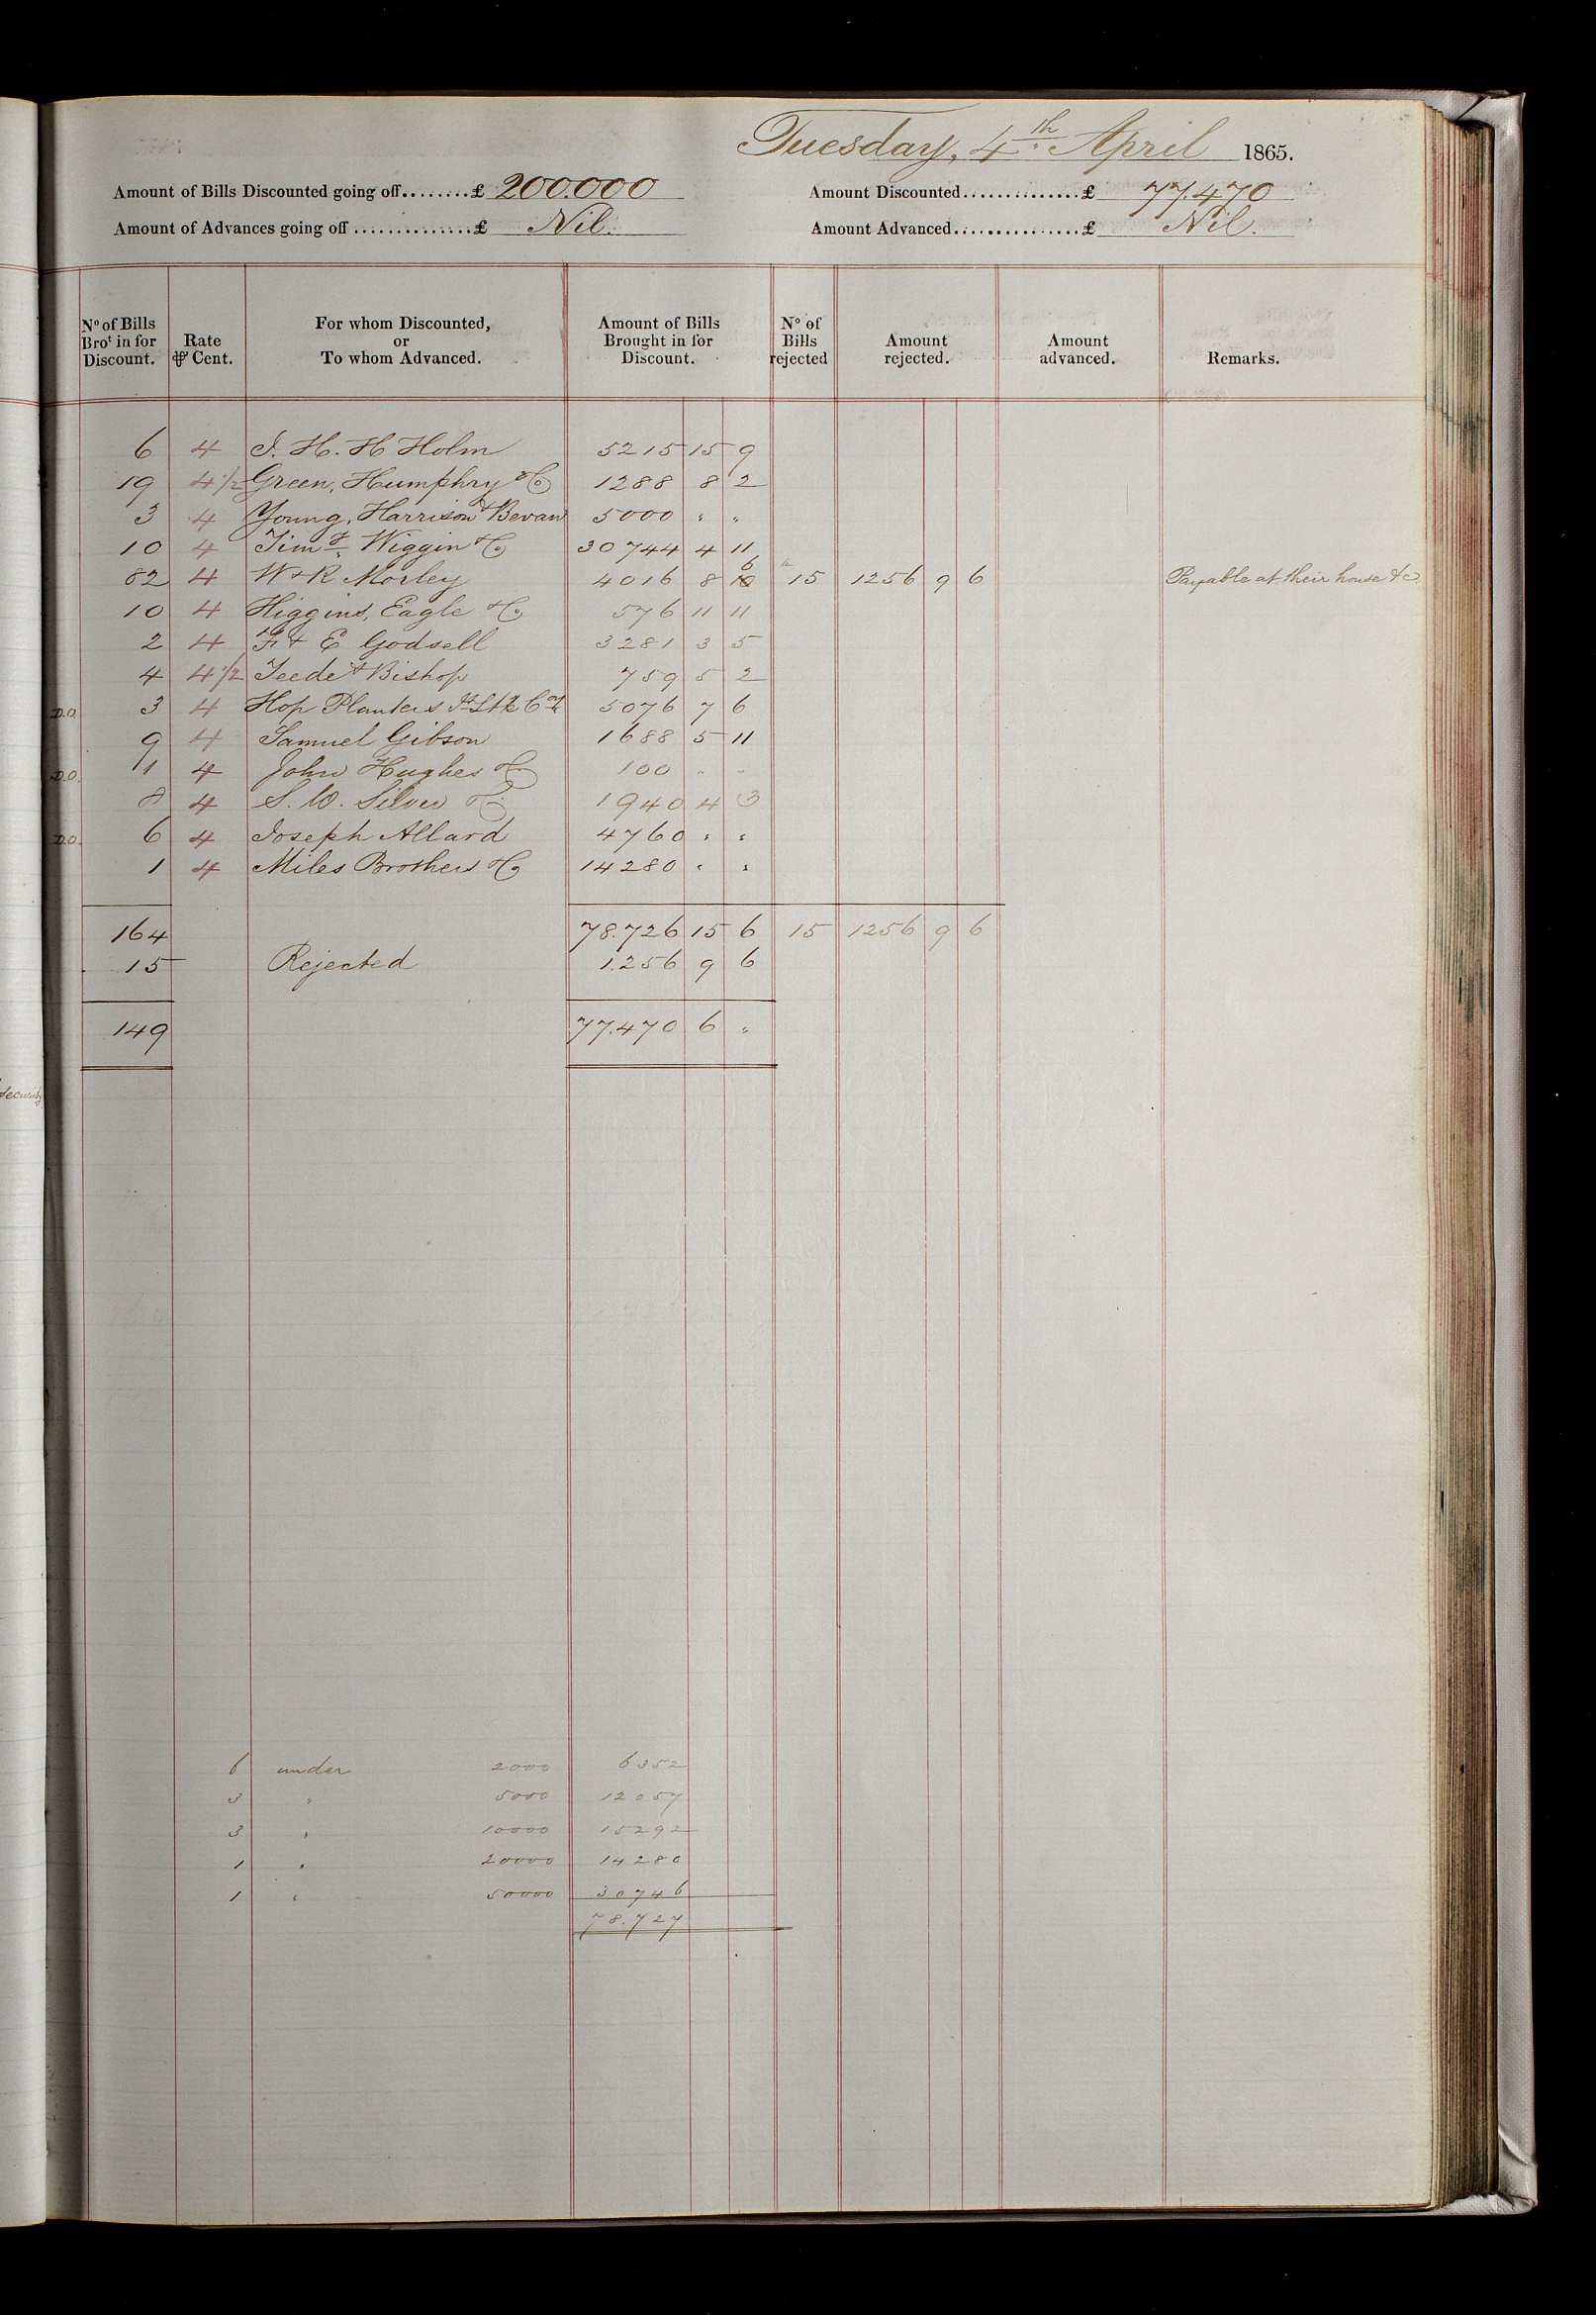 Tuesday, 4th April 1865.
Amount of Bills Discounted going off........£ 200.000 Amount Discounted..............£ 77.470
Amount of Advances going off ..............£ Nil. Amount Advanced...............£ Nil.
No of Bills Brot in for Discount. Rate ⅌ Cent. For whom Discounted, or To whom Advanced. Amount of Bills Brought in for Discount. No of Bills rejected Amount rejected. Amount advanced. Remarks.
6 4 J. H. H Holm 5215 15 9
19 4 1/2 Green, Humphry & Co 1288 8 2
3 4 Young, Harrison & Bevan 5000 " "
10 4 Timy Wiggin & Co 30744 4 11
82 4 W & R Morley 4016 8 6 15 1256 9 6 Payable at their house &c.
10 4 Higgins, Eagle & Co 576 11 11
2 4 F & E Godsell 3281 3 5
4 4 1/2 Teede & Bishop 759 5 2
D.O. 3 4 Hop Planters Jt Stk Coy 5076 7 6
9 4 Samuel Gibson 1688 5 11
D.O. 1 4 John Hughes & Co 100 " "
8 4 S. W. Silver & Co 1940 4 3
D.O. 6 4 Joseph Allard 4760 " "
1 4 Miles Brothers & Co 14280 " "
164 78.726 15 6 15 1256 9 6
15 Rejected 1.256 9 6
149 77.470 6 "
security
6 under 2000 6352
3 " 5000 12057
3 " 10000 15292
1 " 20000 14280
1 " 50000 30746
78.727